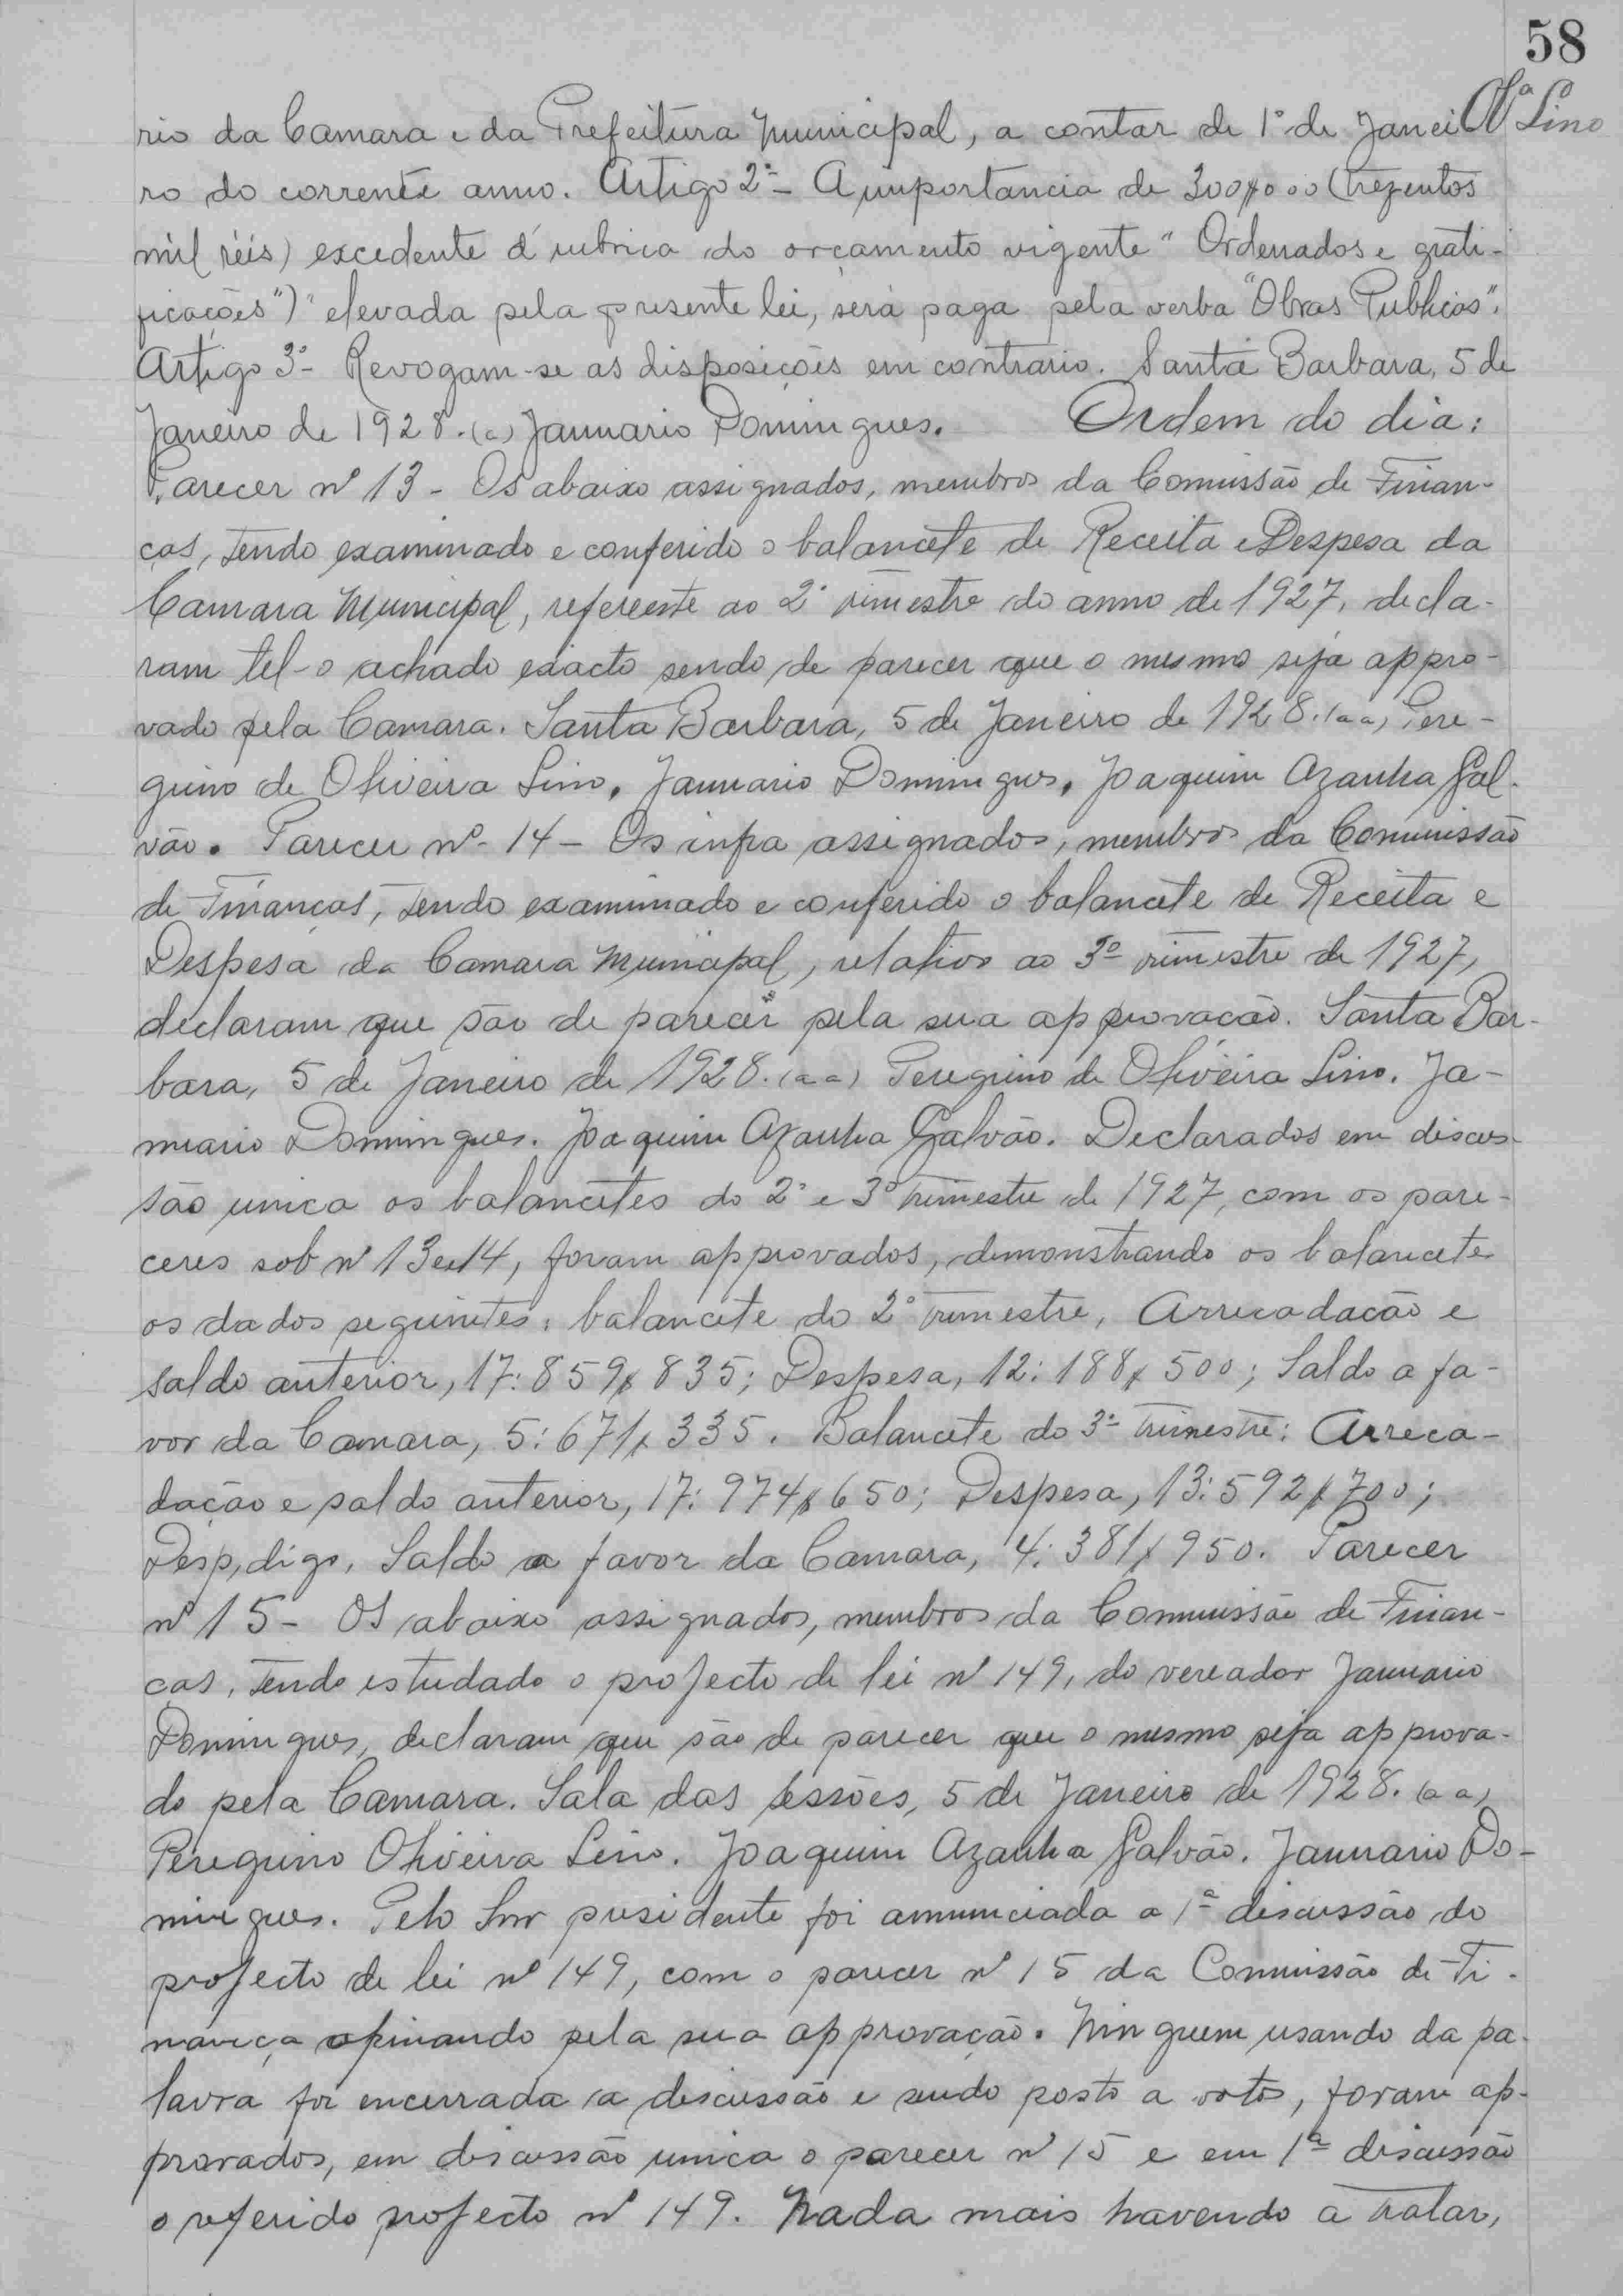 58
rio da Camara e da Prefeitura Municipal, a contar de 1º de Janei
Lino
ro do corrente anno. Artigo 2º - A importancia de 300$000 (trezentos
mil réis) excedente á rubrica do orçamento vigente "Ordenados e grati-
ficações") elevada pela presente lei, será paga pela verba "Obras Publicas".
Artigo 3º - Revogam-se as disposições em contrario. Santa Barbara, 5 de
Janeiro de 1928. (a) Januario Domingues. Ordem do dia:
Parecer nº 13 - Os abaixo assignados, membros da Comissão de Finan-
ças, tendo examinado e conferido o balancete de Receita e Despesa da
Camara Municipal, referente ao 2º trimestre do anno de 1927, decla-
ram tel-o achado exacto sendo de parecer que o mesmo seja appro-
vado pela Camara. Santa Barbara, 5 de Janeiro de 1928. (aa) Pere-
grino de Oliveira Lino, Januario Domingues, Joaquim Azanha Gal-
vão. Parecer nº 14 - Os infra assignados, membros da Commissão
de Finanças, tendo examinado e conferido o balancete de Receita e
Despesa da Camara Municipal, relativo ao 3º trimestre de 1927,
declaram que são de parecer pela sua approvação. Santa Bar-
bara, 5 de Janeiro de 1928. (aa) Peregrino de Oliveira Lino. Ja-
nuario Domingues. Joaquim Azanha Galvão. Declarados em discus-
são unica os balancetes do 2º e 3º trimestre de 1927, com os pare-
ceres sob nº 13 e 14, foram approvados, demonstrando os balancete
os dados seguintes: balancete do 2º trimestre, Arrecadação e
saldo anterior, 17:859$835; Despesa, 12:188$500; Saldo a fa-
vor da Camara, 5:671$335. Balancete do 3º trimestre: Arreca-
dação e saldo anterior, 17:974$650; Despesa, 13:592$700;
Desp, digo, Saldo a favor da Camara, 4:381$950. Parecer
nº 15 - Os abaixo assignados, membros da Commissão de Finan-
ças, tendo estudado o projecto de lei nº 149, do vereador Januario
Domingues, declaram que são de parecer que o mesmo seja approva-
do pela Camara. Sala das sessões, 5 de Janeiro de 1928. (aa)
Peregrino Oliveira Lino. Joaquim Azanha Galvão. Januario Do-
mingues. Pelo Snr presidente foi annunciada a 1ª discussão do
projecto de lei nº 149, com o parecer nº 15 da Commissão de Fi-
nança opinando pela sua approvação. Ninguem usando da pa-
lavra foi encerrada a discussão e sendo posto a votos, foram ap-
provados, em discussão unica o parecer nº 15 e em 1ª discussão
o referido projecto nº 149. Nada mais havendo a tratar,